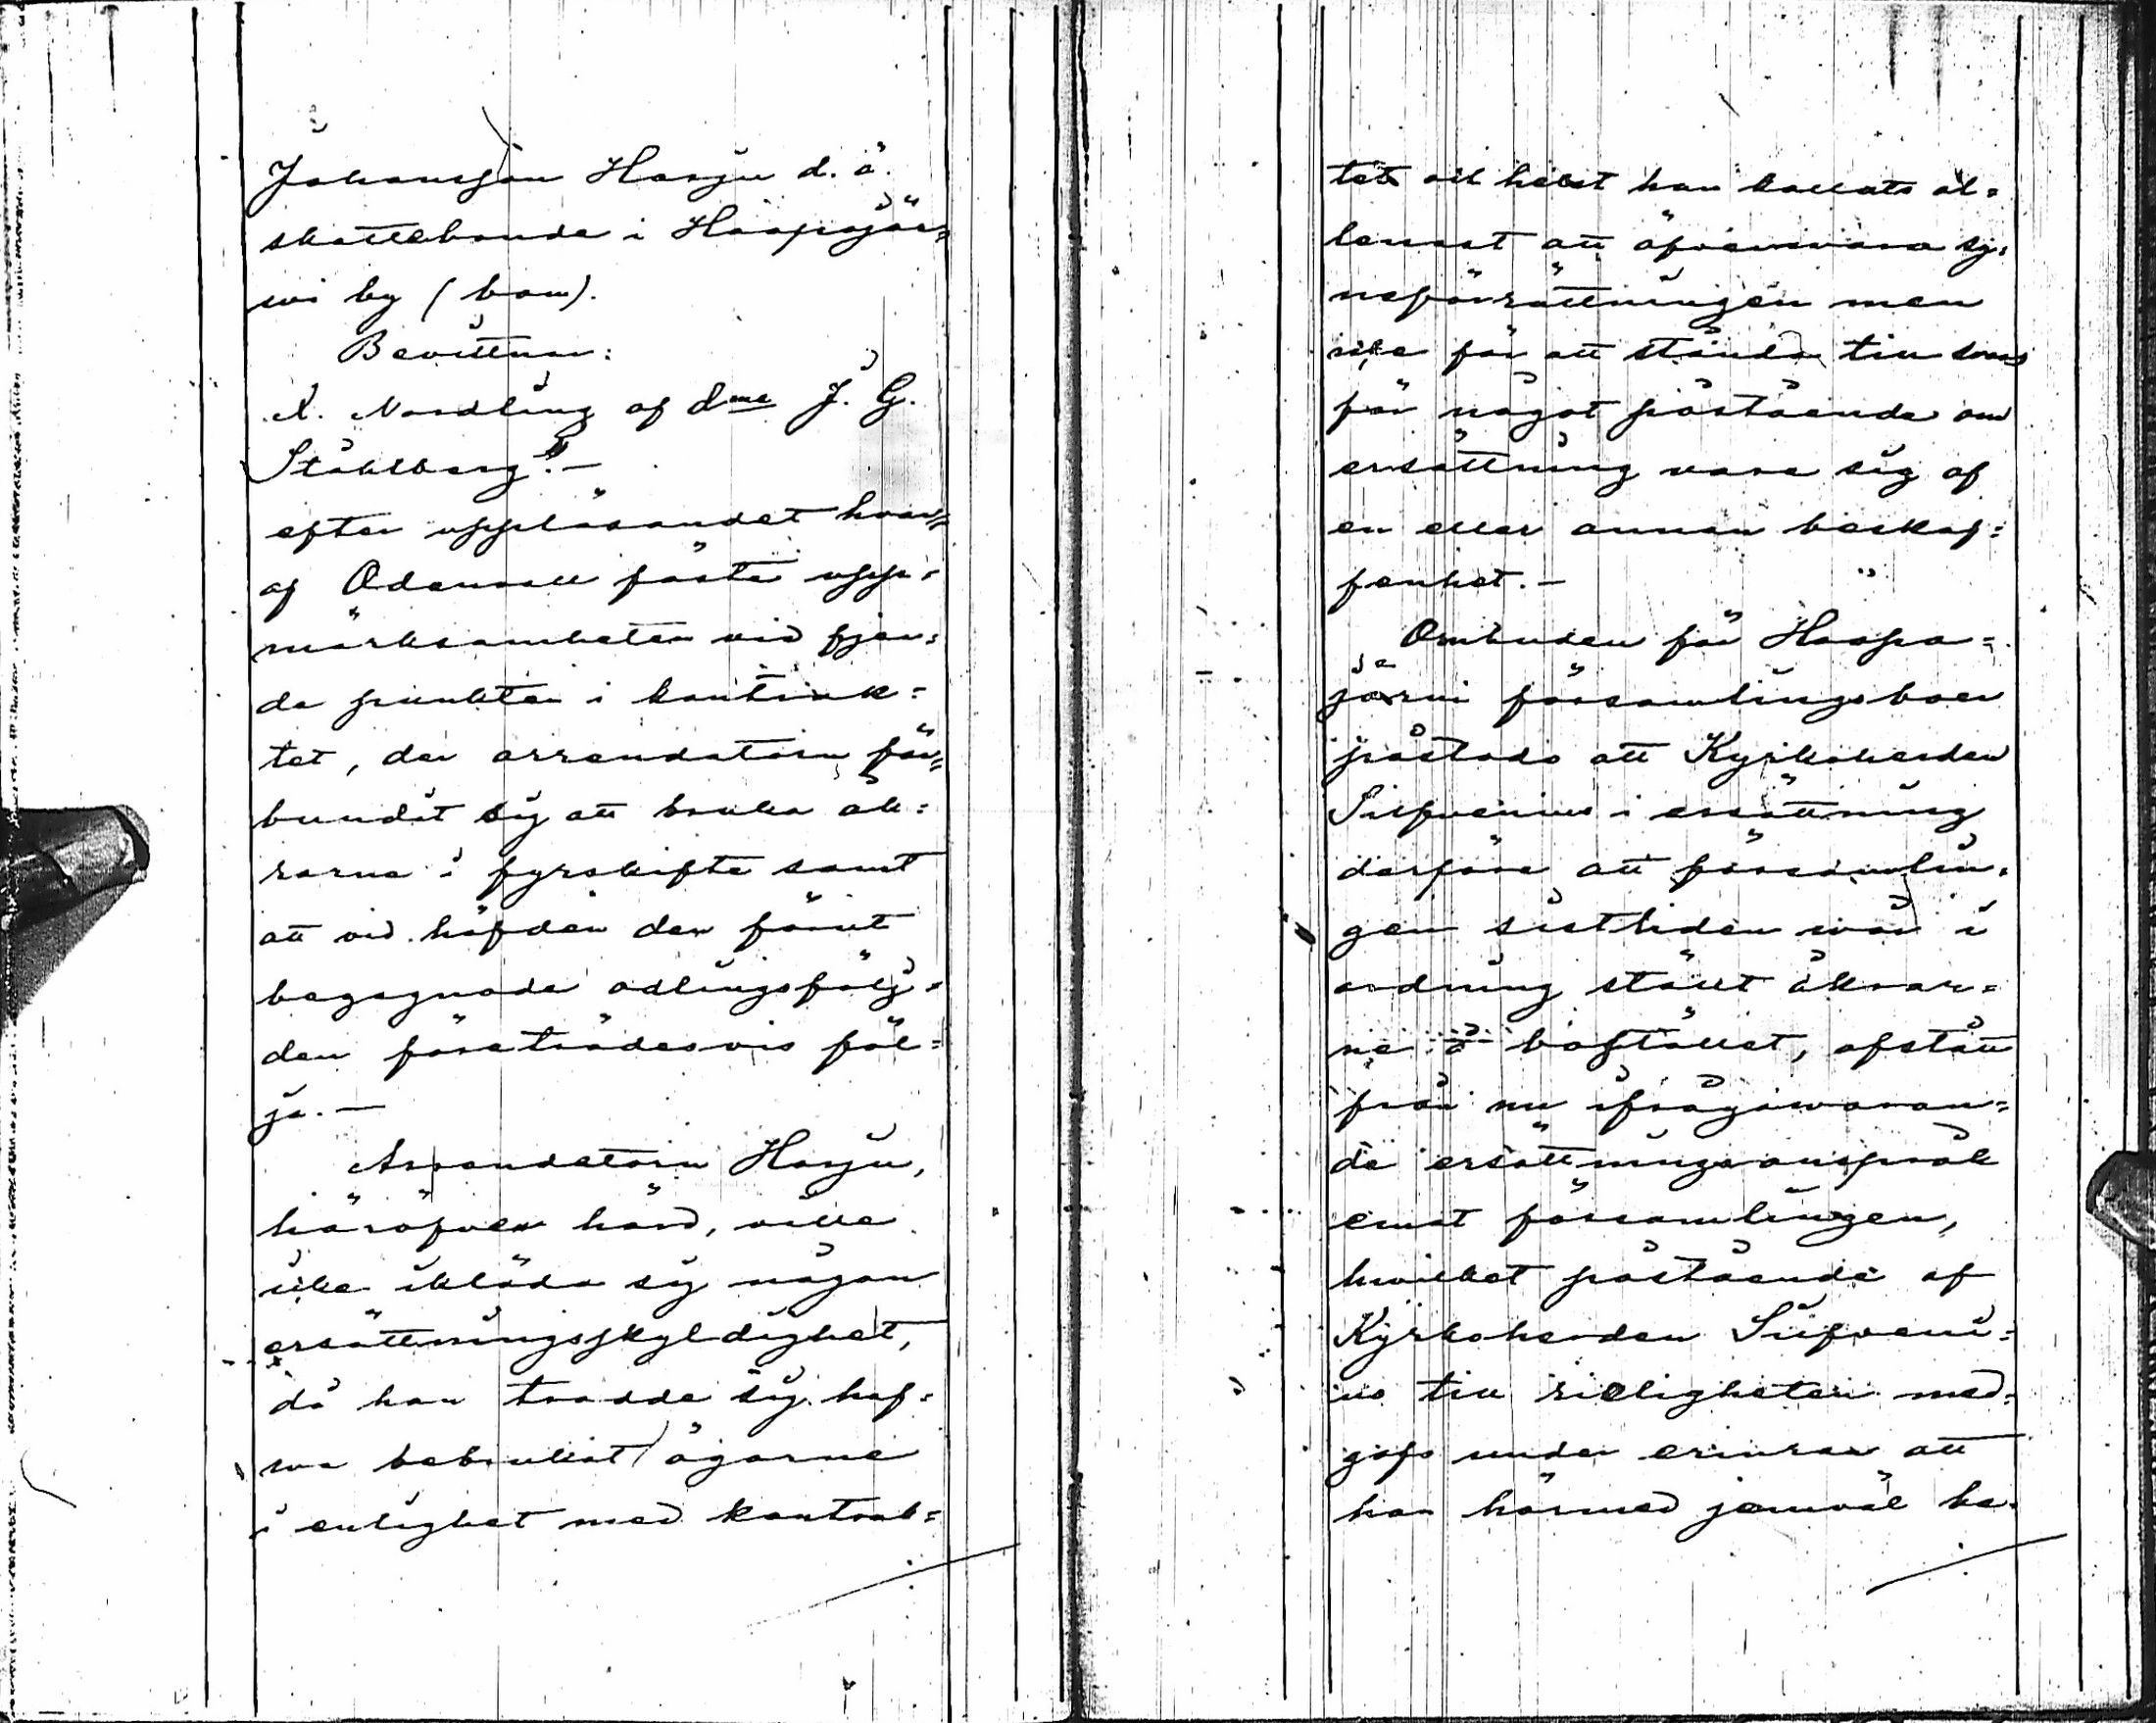 Johansson Harju d. ä.
skattebonde i Haapajär=
wi by (bom).
Bevittnar:
K. Nordling af dme J. G.
Ståhlberg". —
efter uppläsandet hvar=
af Ödenwall fäste upp=
märksamheten vid fjer=
de punkten i kontrak=
tet, der arrendatorn för=
bundit sig att bruka åk=
rarne i fyrskifte samt
att vid häfden den förut
begagnade odlingsfölj=
den företrädesvis föl=
ja. —
Arrendatorn Harju,
häröfver hörd, ville
icke ikläda sig någon
ersättningsskyldighet,
då han trodde sig haf=
wa bebrukat ägorne
i enlighet med kontrak=
tet och hälst han kallats al=
lenast att öfvervara sy=
neförrättningen men
icke för att stånda till svars
för något påstående om
ersättning vare sig af
en eller annan beskaf=
fenhet. —
Ombuden för Haapa=
järvi församlingsboer
påstodo att Kyrkoherden
Silfvenius i ersättning
derföre att församlin=
gen sistliden vår i
ordning ställt åkrar=
ne å bostället, afstått
från nu ifrågawaran=
de ersättningsanspråk
emot församlingen,
hwilket påstående af
Kyrkoherden Silfveni=
us till riktigheten med=
gafs under erinran att
han härmed jemväl be=